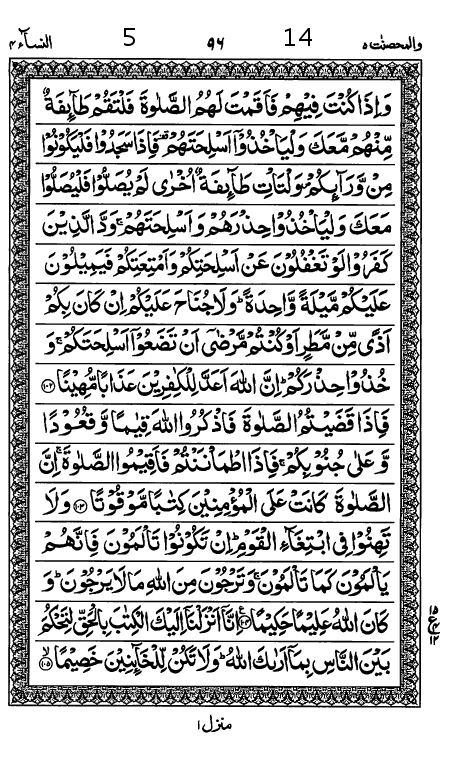 والمحصنٰت ٥ 14 ٩٦ 5 النسآء ٤
وَاِذَا كُنْتَ فِيْهِمْ فَاَقَمْتَ لَهُمُ الصَّلٰوةَ فَلْتَقُمْ طَآىِٕفَةٌ
مِّنْهُمْ مَّعَكَ وَلْيَاْخُذُوْۤا اَسْلِحَتَهُمْ۫ فَاِذَا سَجَدُوْا فَلْيَكُوْنُوْا
مِنْ وَّرَآىِٕكُمْ۪ وَلْتَاْتِ طَآىِٕفَةٌ اُخْرٰى لَمْ يُصَلُّوْا فَلْيُصَلُّوْا
مَعَكَ وَلْيَاْخُذُوْا حِذْرَهُمْ وَاَسْلِحَتَهُمْۚ وَدَّ الَّذِيْنَ
كَفَرُوْا لَوْ تَغْفُلُوْنَ عَنْ اَسْلِحَتِكُمْ وَاَمْتِعَتِكُمْ فَيَمِيْلُوْنَ
عَلَيْكُمْ مَّيْلَةً وَّاحِدَةًؕ وَلَا جُنَاحَ عَلَيْكُمْ اِنْ كَانَ بِكُمْ
اَذًى مِّنْ مَّطَرٍ اَوْ كُنْتُمْ مَّرْضٰۤى اَنْ تَضَعُوْۤا اَسْلِحَتَكُمْۚ وَ
خُذُوْا حِذْرَكُمْؕ اِنَّ اللّٰهَ اَعَدَّ لِلْكٰفِرِيْنَ عَذَابًا مُّهِيْنًا ﴿۱۰۲﴾
فَاِذَا قَضَيْتُمُ الصَّلٰوةَ فَاذْكُرُوا اللّٰهَ قِيٰمًا وَّقُعُوْدًا
وَّعَلٰى جُنُوْبِكُمْۚ فَاِذَا اطْمَاْنَنْتُمْ فَاَقِيْمُوا الصَّلٰوةَۚ اِنَّ
الصَّلٰوةَ كَانَتْ عَلَى الْمُؤْمِنِيْنَ كِتٰبًا مَّوْقُوْتًا ﴿۱۰۳﴾ وَلَا
تَهِنُوْا فِى ابْتِغَآءِ الْقَوْمِؕ اِنْ تَكُوْنُوْا تَاْلَمُوْنَ فَاِنَّهُمْ
يَاْلَمُوْنَ كَمَا تَاْلَمُوْنَۚ وَتَرْجُوْنَ مِنَ اللّٰهِ مَا لَا يَرْجُوْنَؕ وَ
كَانَ اللّٰهُ عَلِيْمًا حَكِيْمًا ﴿۱۰۴﴾ اِنَّاۤ اَنْزَلْنَاۤ اِلَيْكَ الْكِتٰبَ بِالْحَقِّ لِتَحْكُمَ
بَيْنَ النَّاسِ بِمَاۤ اَرٰىكَ اللّٰهُؕ وَلَا تَكُنْ لِّلْخَآىِٕنِيْنَ خَصِيْمًا ﴿۱۰۵﴾
۱۵
ع
۱۲
منزل ۱